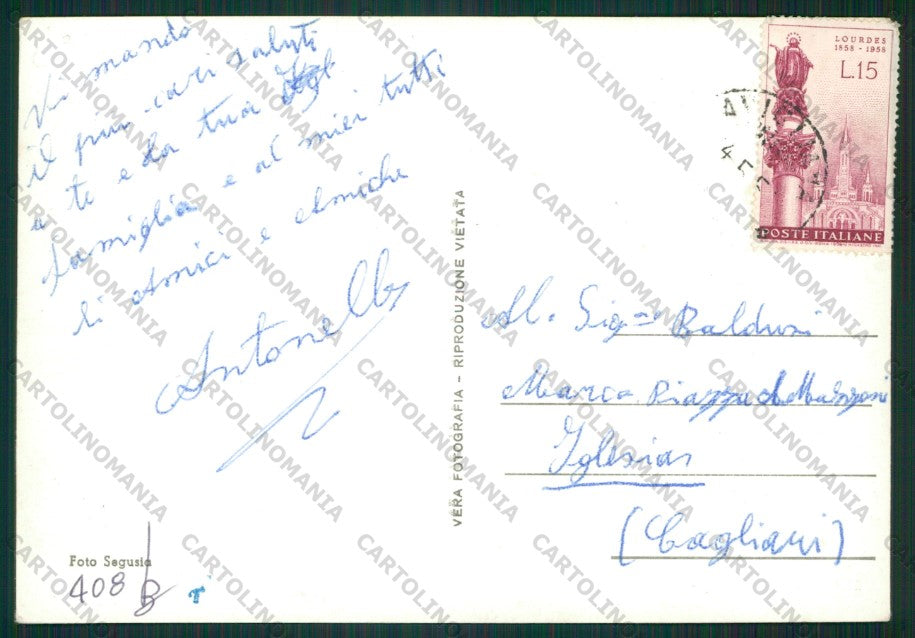 Vi mando
il più cari saluti
a te e da tua
famiglia e al miei tutti
li Amici e Amiche
Antonella
VERA FOTOGRAFIA - RIPRODUZIONE VIETATA
Foto Segusia
408 B
LOURDES
1858 - 1958
L.15
POSTE ITALIANE
Al. Sig.no Balduzi
Marco Piazza
Iglesias
(Cagliari)
CARTOLINOMANIA